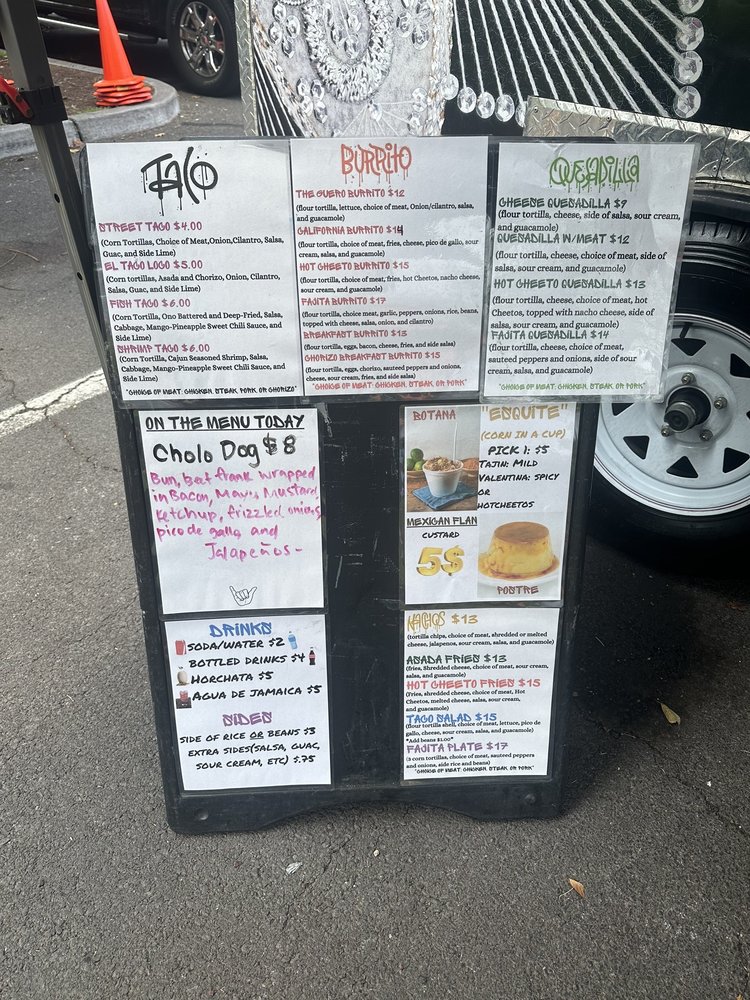 TACO
STREET TACO $4.00
(Corn Tortillas, Choice of Meat,Onion,Cilantro, Salsa,
Guac, and Side Lime)
EL TACO LOCO $5.00
(Corn tortillas, Asada and Chorizo, Onion, Cilantro,
Salsa, Guac, and Side Lime)
FISH TACO $6.00
(Corn Tortilla, Ono Battered and Deep-Fried, Salsa,
Cabbage, Mango-Pineapple Sweet Chili Sauce, and
Side Lime)
SHRIMP TACO $6.00
(Corn Tortilla, Cajun Seasoned Shrimp, Salsa,
Cabbage, Mango-Pineapple Sweet Chili Sauce, and
Side Lime)
*CHOICE OF MEAT: CHICKEN, STEAK, PORK, OR CHORIZO
BURRITO
THE GUERO BURRITO $12
(flour tortilla, lettuce, choice of meat, Onion/cilantro, salsa,
and guacamole)
CALIFORNIA BURRITO $14
(flour tortilla, choice of meat, fries, cheese, pico de gallo, sour
cream, salsa, and guacamole)
HOT CHEETO BURRITO $15
(flour tortilla, choice of meat, fries, hot Cheetos, nacho cheese,
sour cream, salsa, and guacamole)
FAJITA BURRITO $17
(flour tortilla, choice meat, garlic, peppers, onions, rice, beans,
topped with cheese, salsa, onion, and cilantro)
BREAKFAST BURRITO $13
(flour tortilla, eggs, bacon, cheese, fries, and side salsa)
CHORIZO BREAKFAST BURRITO $15
(flour tortilla, eggs, chorizo, sauteed peppers and onions,
cheese, sour cream, fries, and side salsa)
*CHOICE OF MEAT: CHICKEN, STEAK, OR PORK*
QUESADILLA
CHEESE QUESADILLA $9
(flour tortillas, cheese, side of salsa, sour cream,
and guacamole)
QUESADILLA W/MEAT $12
(flour tortilla, cheese, choice of meat, side of
salsa, sour cream, and guacamole)
HOT CHEETO QUESADILLA $13
(flour tortillas, cheese, choice of meat, hot
Cheetos, topped with nacho cheese, side of
salsa, sour cream, and guacamole)
FAJITA QUESADILLA $14
(flour tortilla, cheese, choice of meat,
sauteed peppers and onions, side of sour
cream, salsa, and guacamole)
*CHOICE OF MEAT: CHICKEN, STEAK, OR PORK*
ON THE MENU TODAY
Cholo Dog $8
Bun, beef frank wrapped
in Bacon, Mayo, Mustard,
Ketchup, frizzled onions,
pico de gallo and
Jalapeños-
BOTANA
"ESQUITE"
(CORN IN A CUP)
PICK 1: $5
TAJIN: MILD
VALENTINA: SPICY
OR
HOTCHEETOS
MEXICAN FLAN
CUSTARD
5$
POSTRE
DRINKS
SODA/WATER $2
BOTTLED DRINKS $4
HORCHATA $5
AGUA DE JAMAICA $5
SIDES
SIDE OF RICE OR BEANS $3
EXTRA SIDES(SALSA, GUAC,
SOUR CREAM, ETC) $.75
NACHOS $13
(tortilla chips, choice of meat, shredded or melted
cheese, jalapenos, sour cream, salsa, and guacamole)
ASADA FRIES $13
(fries, Shredded cheese, choice of meat, sour cream,
salsa, and guacamole)
HOT CHEETO FRIES $15
(Fries, shredded cheese, choice of meat, Hot
Cheetos, melted cheese, salsa, sour cream,
and guacamole)
TACO SALAD $15
(flour tortilla shell, choice of meat, lettuce, pico de
gallo, cheese, sour cream, salsa, and guacamole)
*Add beans $1.00*
FAJITA PLATE $17
(3 corn tortillas, choice of meat, sauteed peppers
and onions, side rice and beans)
*CHOICE OF MEAT: CHICKEN, STEAK, OR PORK*